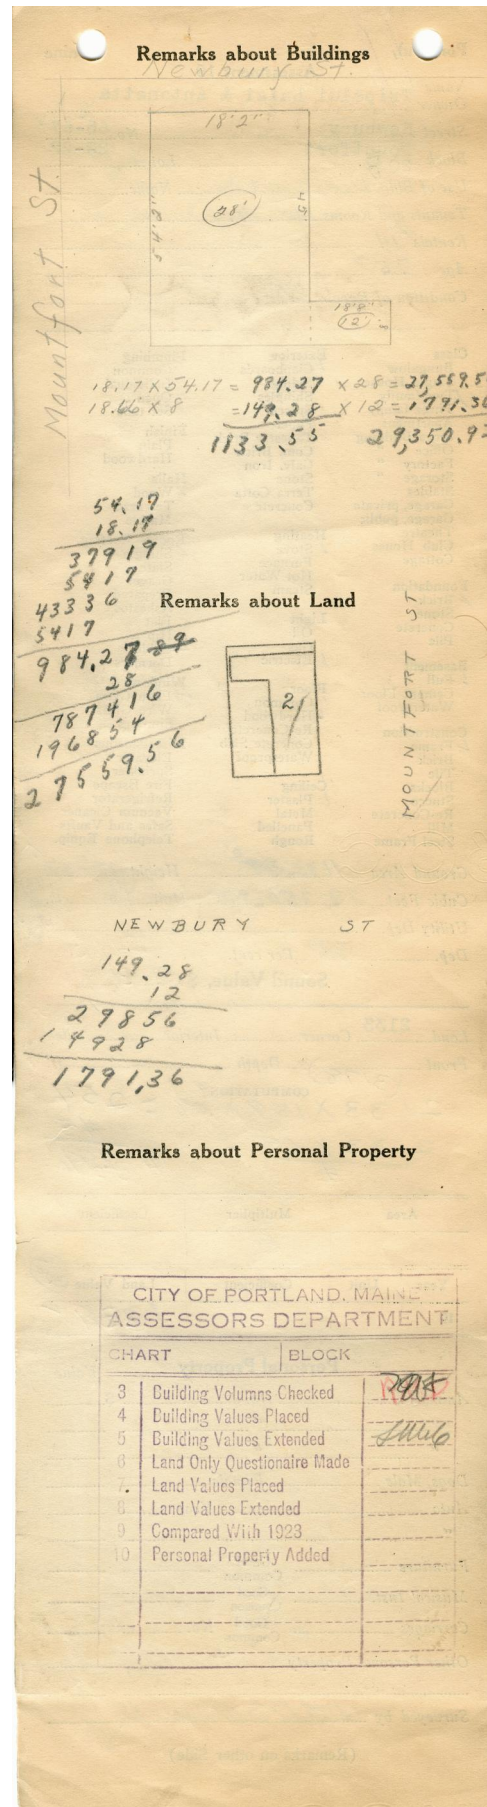 Remarks about Buildings
Newbury St.
Mountfort St.
18'2"
54'2"
45'
28'
18'8"
8'
12'
18.17 X 54.17 = 984.27 X 28 = 27,559.5
18.66 X 8 = 149.28 X 12 = 1791.36
1133.55 29,350.92
54.17
18.17
37919
5417
43336
5417
984.2789
28
787416
196854
27559.56
Remarks about Land
2
MOUNTFORT ST
NEWBURY ST
149.28
12
29856
14928
1791,36
Remarks about Personal Property
CITY OF PORTLAND, MAINE
ASSESSORS DEPARTMENT
CHART BLOCK
3 Building Volumns Checked
4 Building Values Placed
5 Building Values Extended
6 Land Only Questionaire Made
7 Land Values Placed
8 Land Values Extended
9 Compared With 1923
10 Personal Property Added